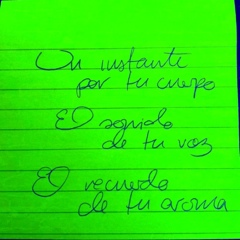 Un instante
por tu cuerpo
El sonido
de tu voz
El recuerdo
de tu aroma